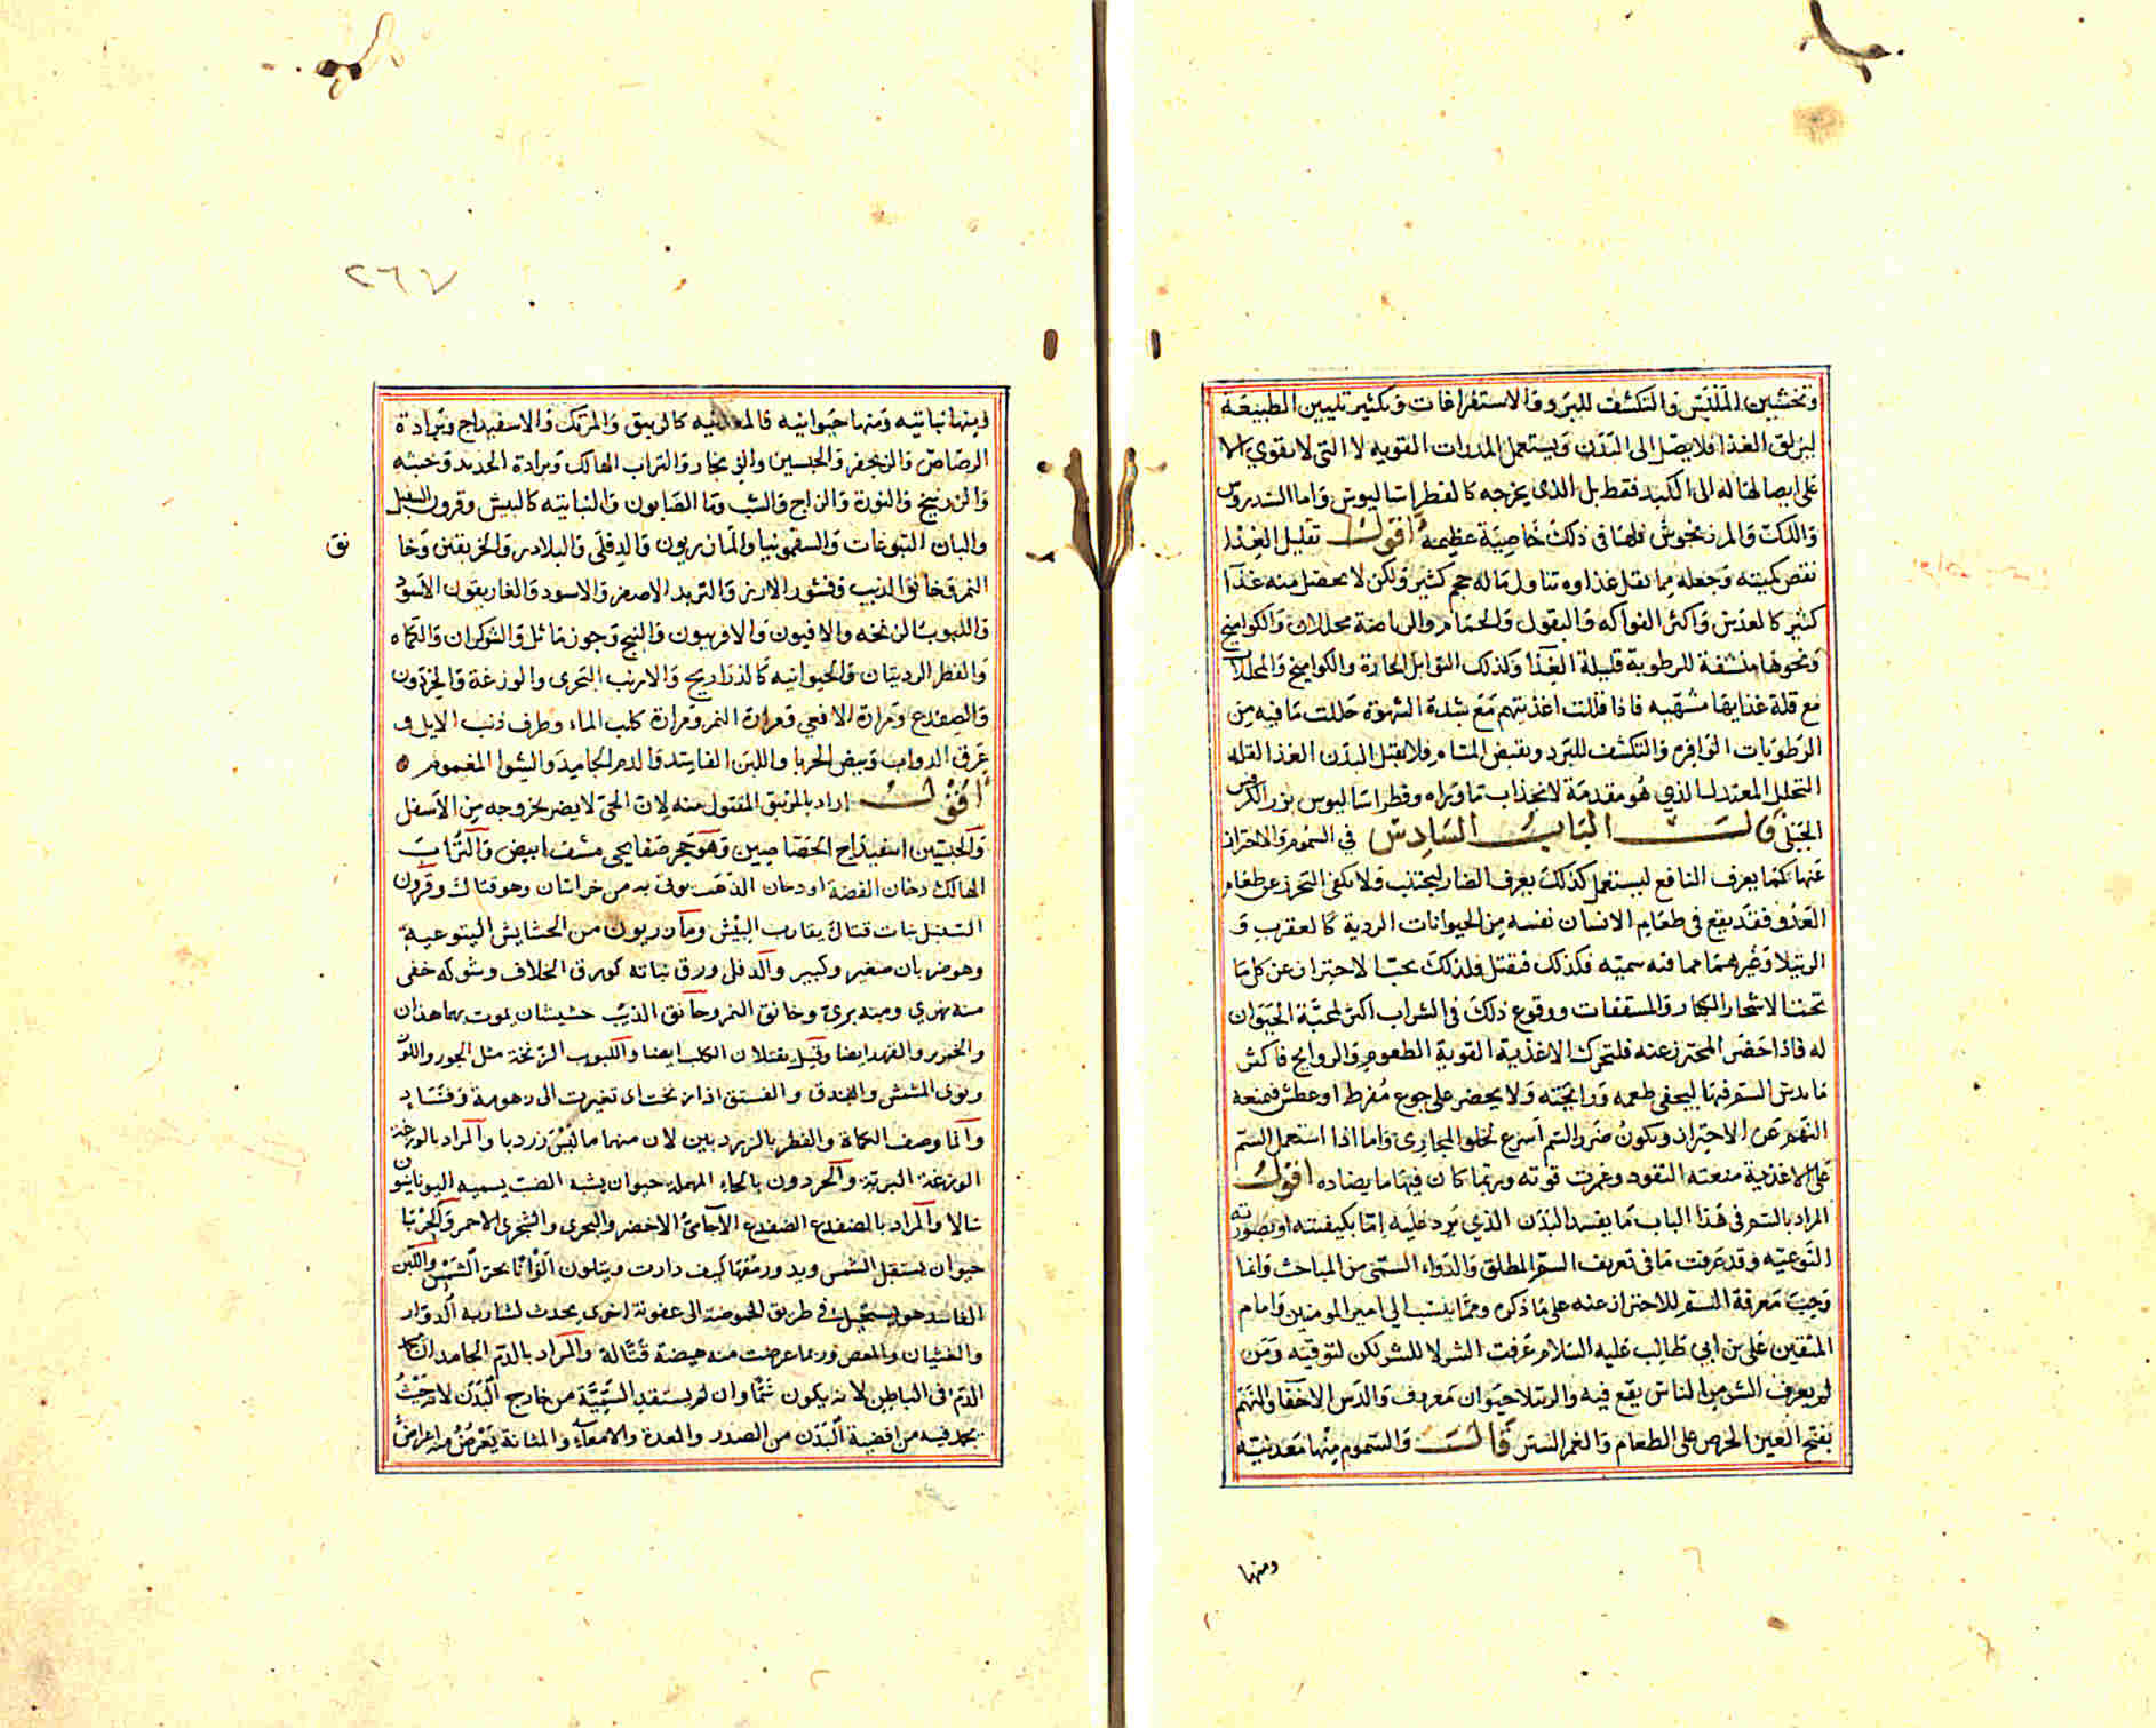 وتخشين الملبس والتكشف للبرد والاستفراغات وتكثير تليين الطبيعة
ليزلق الغذا فلا يصل الى البدن ويستعمل المدرات القويه لا التي لا تقوي الا
على ايصالها له الى الكبد فقط بل الذي يخرجه كالفطراساليوس واما السندروس
واللك والمرزنجوش فلها في ذلك خاصية عظيمة اقول تقليل الغذا
نقص كميته وجعله مما يقل غذاوه تناول ماله حجم كثير ولكن لا يحصل منه غذا
كثير كالعدس واكثر الفواكه والبقول والحمام والرياضة محللان والكواميخ
ونحوها منشفة للرطوبة قليلة الغذا وكذلك التوابل الحارة والكواميخ والمخللات
مع قلة غذايها مشهيه فاذا قللت اغذيتهم مع شدة الشهوة حللت ما فيه من
الرطوبات الوافره والتكشف للبرد ويقبض المسام فلا يقبل البدن الغذا لقله
التحلل المعتدل الذي هو مقدمة لانجذاب ما وراه وفطراساليوس بزر الكرفس
الجبلي قال الباب السادس في السموم والاحتراز
عنها كما يعرف النافع ليستعمل كذلك يعرف الضار ليجتنب ولا يكفي التحرز عن طعام
العدو فقد يقع في طعام الانسان نفسه من الحيوانات الردية كالعقرب و
الرتيلا وغيرهما مما فيه سمية فكذلك فيقتل فلذلك يجب الاحتراز عن كل ما
تحت الاشجار الكبار والمسقفات ووقوع ذلك في الشراب اكثر لمحبة الحيوان
له فاذا حضر المحترز عنه فليتحرك الاغذية القوية الطعوم والروايح فاكثر
ما يدس السم فيها ليخفي طعمه ورايحته ولا يحضر على جوع مفرط او عطش فيمنعه
النهم عن الاحتراز ويكون ضرر السم اسرع لخلو المجاري واما اذا استعمل السم
على الاغذية منعته النفود وغمرت قوته وربما كان فيها ما يضاده اقول
المراد بالسم في هذا الباب ما يفسد البدن الذي يرد عليه اما بكيفيته او بصورته
النوعيه وقد عرفت ما في تعريف السم المطلق والدواء السمي من المباحث وانما
وجبت معرفة السم للاحتراز عنه على ما ذكره ومما ينسب الى امير المومنين وامام
المتقين علي بن ابي طالب عليه السلام عرفت الشر لا للشر لكن لتوقيه ومن
لم يعرف الشر من الناس يقع فيه والرتيلا حيوان معروف والدس الاخفا والنهم
بفتح العين الحرص على الطعام والغمر الستر قال والسموم منها معدنية
ومنها
٢٦٧
ومنها نباتيه ومنها حيوانيه فالمعدنيه كالزيبق والمرتك والاسفيداج وبرادة
الرصاص والزنجفر والجبسين والزنجار والتراب الهالك وبرادة الحديد وخبثه
والزرنيخ والنورة والزاج والشب وما الصابون والنباتيه كالبيش وقرون السنبل
والبان اليتوعات والسقمونيا والمازريون والدفلى والبلادر والخربقين وخا
نق
النمر وخانق الذيب وقشور الارز والتربد الاصفر والاسود والغاريقون الاسود
واللبوب الزنخه والافيون والافربيون والبنج وجوز ماثل والشوكران والكماه
والفطر الرديتان والحيوانيه كالذراريح والارنب البحري والوزغة والحردون
والضفدع ومرارة الافعي ومرارة النمر ومرارة كلب الماء وطرف ذنب الايل و
عرق الدواب وبيض الحربا واللبن الفاسد والدم الجامد والشوا المغموم
اقول اراد بالزيبق المقتول منه لان الحي لا يضر لخروجه من الاسفل
والجبسين اسفيداج الجصاصين وهو حجر صفايحي مشف ابيض والتراب
الهالك دخان الفضة او دخان الذهب يوتى به من خراسان وهو قتال وقرون
السنبل نبات قتال يقارب البيش ومازريون من الحشايش اليتوعية
وهو ضربان صغير وكبير والدفلى ورق نباته كورق الخلاف وشوكه خفي
منه نهري ومنه بري وخانق النمر وخانق الذيب حشيشان يموت بهما هذان
والخنزير والفهد ايضا وقيل يقتلان الكلب ايضا واللبوب الزنخة مثل الجوز واللوز
ونوى المشمش والبندق والفستق اذا زنخت اى تغيرت الى دهومة وفساد
وانما وصف الكماة والفطر بالرديين لان منهما ما ليس رديا والمراد بالوزغة
الوزغة البرية والحردون بالحاء المهملة حيوان يشبه الضب يسميه اليونانيون
سالا والمراد بالضفدع الضفدع الاجامي الاخضر والبحري والشجري الاحمر والحربا
حيوان يستقبل الشمس ويدور معها كيف دارت ويتلون الوانا بحر الشمس واللبن
الفاسد هو المستحيل في طريق الحموضة الى عفونة اخرى يحدث لشاربه الدوار
والغثيان والمغص وربما عرضت منه هيضة قتالة والمراد بالدم الجامد
الدم في الباطن لانه يكون سما وان لم يستفد السمية من خارج البدن لانه حيث
يجمد فيه من افضية البدن من الصدر والمعدة والامعاء والمثانة يعرض منه اعراض